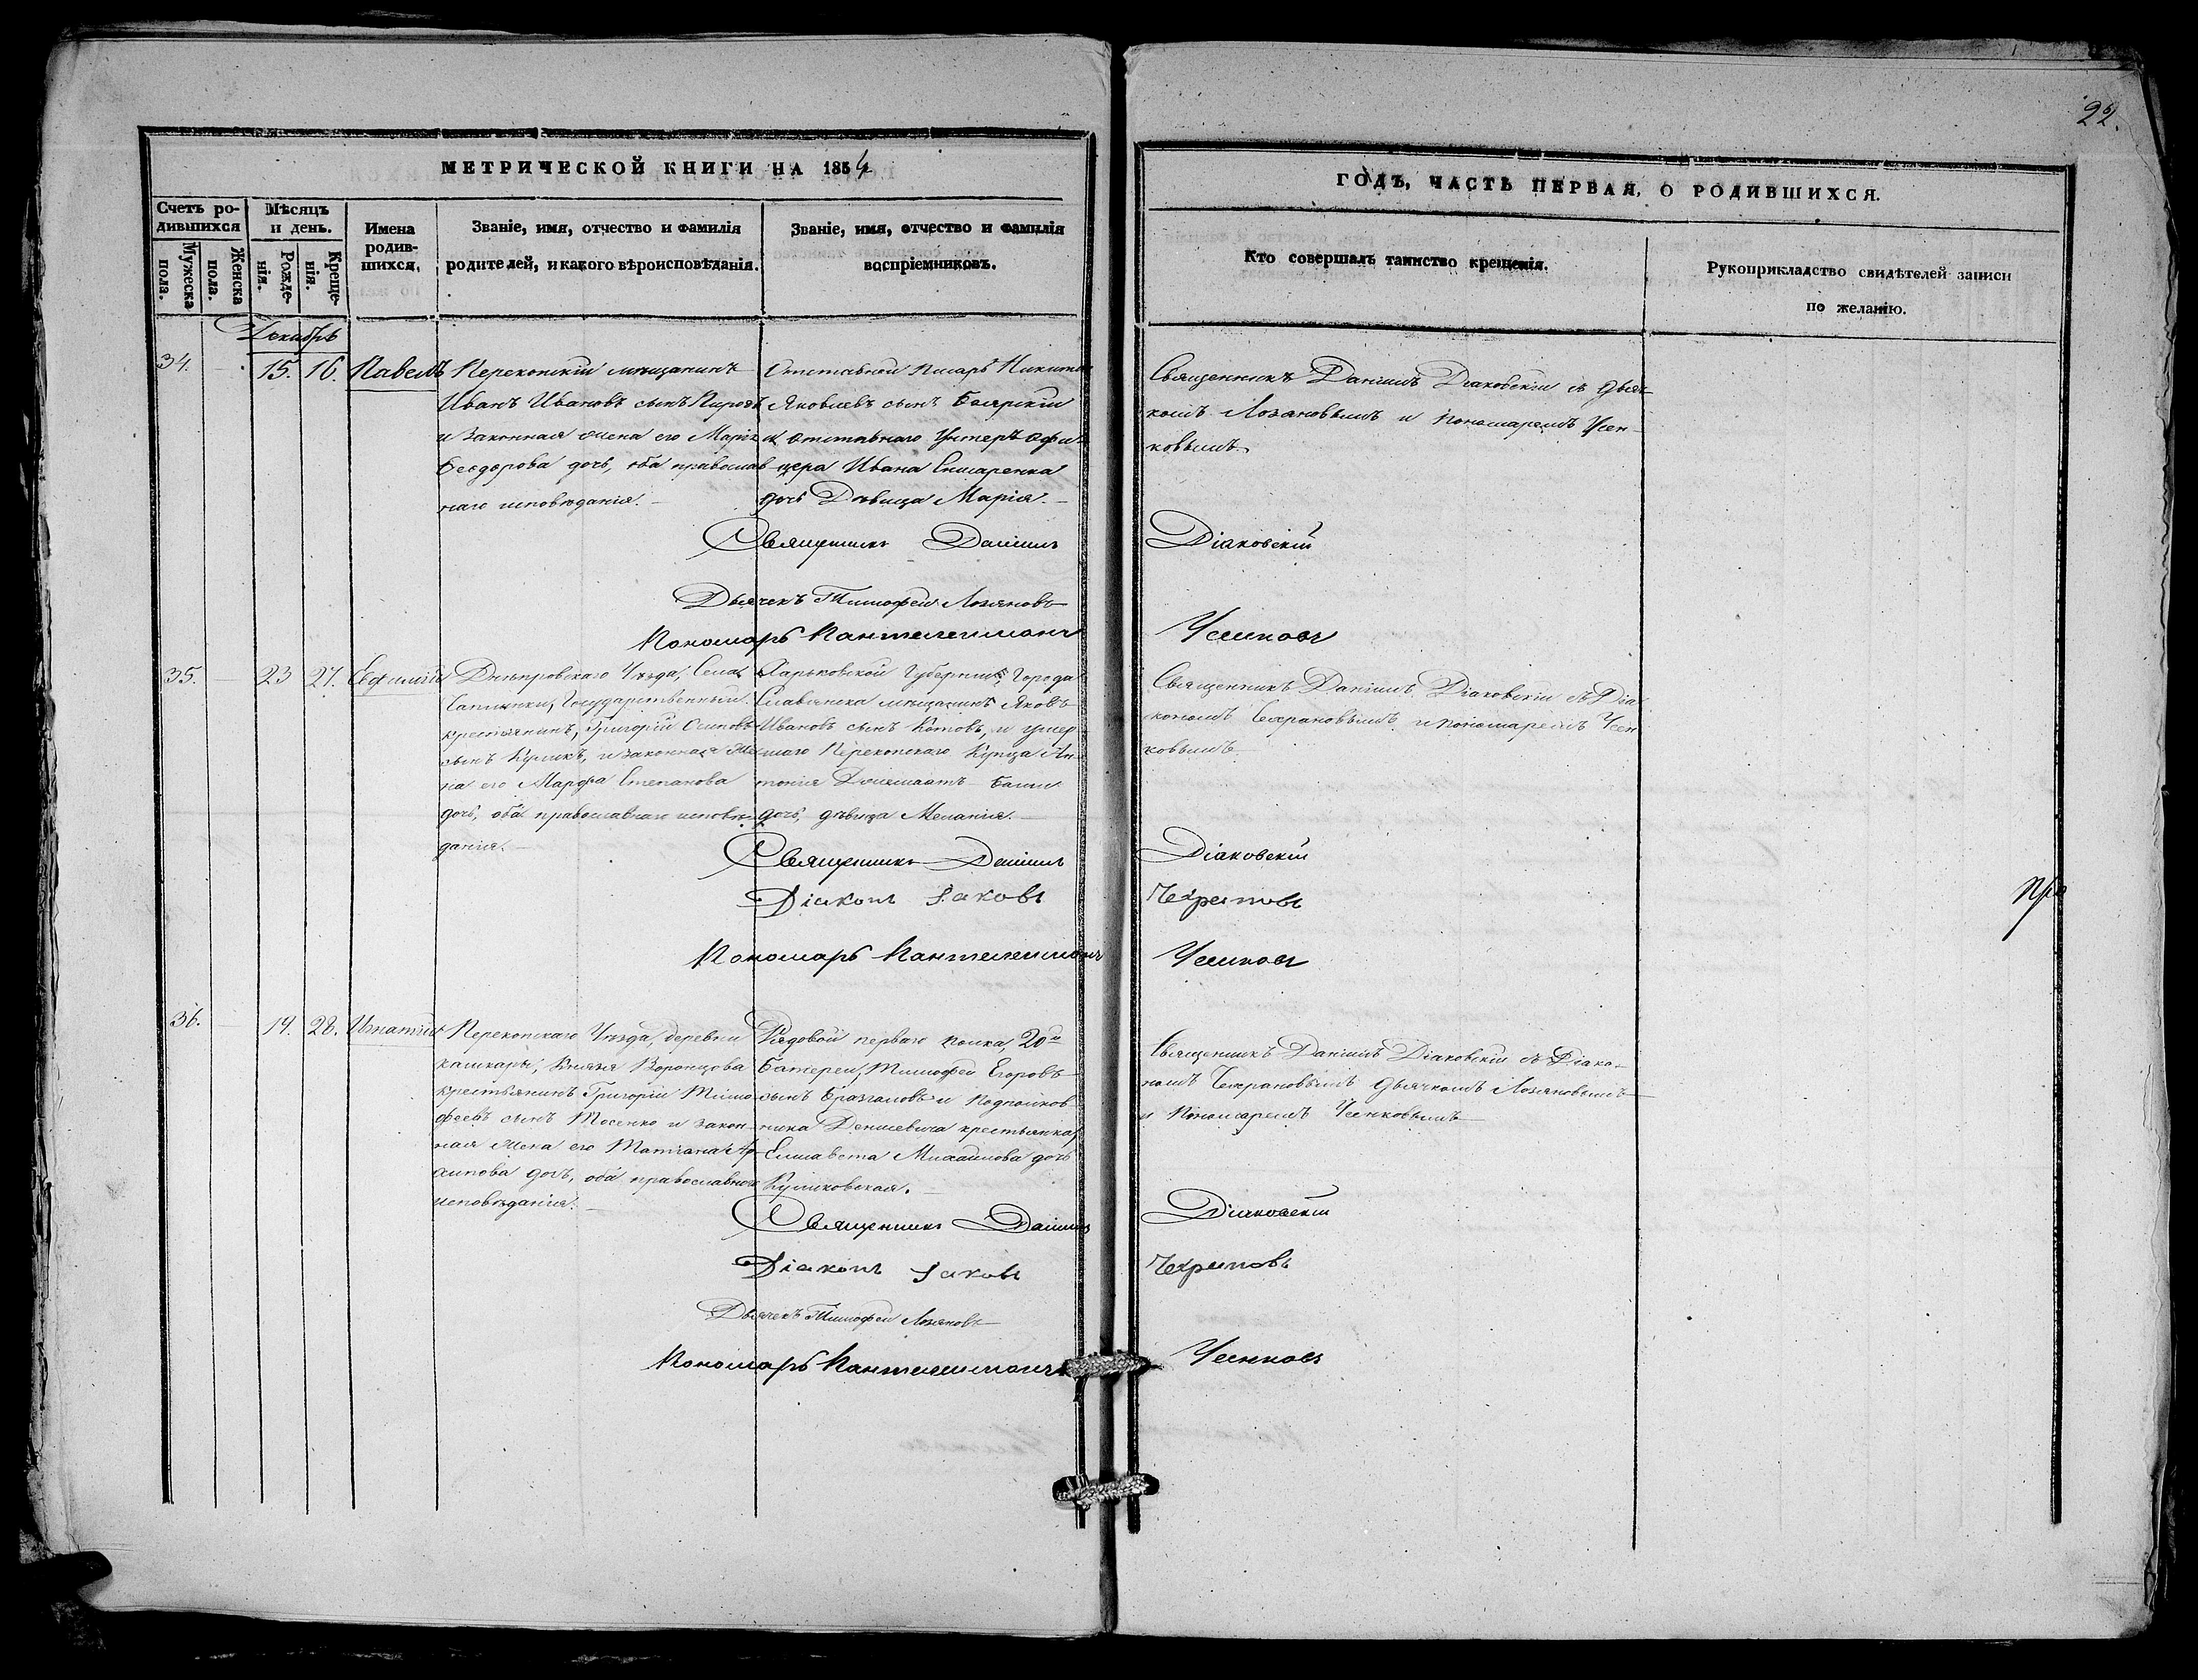 22.
МЕТРИЧЕСКОЙ КНИГИ НА 1854
ГОДЪ, ЧАСТЬ ПЕРВАЯ, О РОДИВШИХСЯ.
Счетъ ро-
дившихся
Мужеска
пола.
Женска
пола.
Мѣсяцъ
и день.
Рожде-
нія.
Креще-
нія.
Имена
родив-
шихся.
Званіе, имя, отчество и фамилія
родителей, и какого вѣроисповѣданія.
Званіе, имя, отчество и фамилія
воспріемниковъ.
Кто совершалъ таинство крещенія.
Рукоприкладство свидѣтелей записи
по желанію.
Декабрь
34.
15.
16.
Павелъ
Перекопскій мѣщанинъ
Иванъ Ивановъ сынъ
и законная жена его Марія
Ѳеодорова дочь, оба православ
наго исповѣданія.
Отставной Писарь Никита
Яковлевъ сынъ Боярскій
и отставнаго Унтеръ офи-
цера Ивана
дочь Дѣвица Марія.
Священникъ Даніилъ Діаковскій съ дьяч-
комъ Лозановымъ и пономаремъ Усен-
ковымъ.
Священникъ Даніилъ Діаковскій
Дьячекъ Тимофей Лозановъ
Пономарь Пантелеимонъ Усенковъ
35.
23
27.
Евфимій
Днѣпровскаго Уѣзда, Села
Чаплинки, Государственный
крестьянинъ, Григорій Осиповъ
сынъ Куликъ, и законная же
на его Марфа Степанова
дочь, оба православнаго исповѣ
данія.
Харьковской Губерніи, Города
Славянска мѣщанинъ Яковъ
Ивановъ сынъ Котовъ, и умер
шаго Перекопскаго Купца Ан-
тонія
дочь, дѣвица Меланія.
Священникъ Даніилъ Діаковскій съ Діа
кономъ Чехрановымъ и пономаремъ Усен
ковымъ
Священникъ Даніилъ Діаковскій
Діаконъ Іаковъ Чехрановъ
Пономарь Пантелеимонъ Усенковъ
36.
19.
28.
Игнатій
Перекопскаго Уѣзда, деревни
Князя Воронцова
крестьянинъ Григорій Тимо
феевъ сынъ Мосенко и закон-
ная жена его Татіана Ар-
хипова дочь, оба православнаго
исповѣданія.
Рядовой перваго полка, 20й
Батереи, Тимофей Егоровъ
сынъ и Подполков
ника крестьянка,
Елисавета Михайлова дочь
Куликовская.
Священникъ Даніилъ Діаковскій съ Діако-
номъ Чехрановымъ дьячкомъ Лозановымъ
и Пономаремъ Усенковымъ
Священникъ Даніилъ Діаковскій
Діаконъ Іаковъ Чехрановъ
Дьячекъ Тимофей Лозановъ
Пономарь Пантелеимонъ Усенковъ